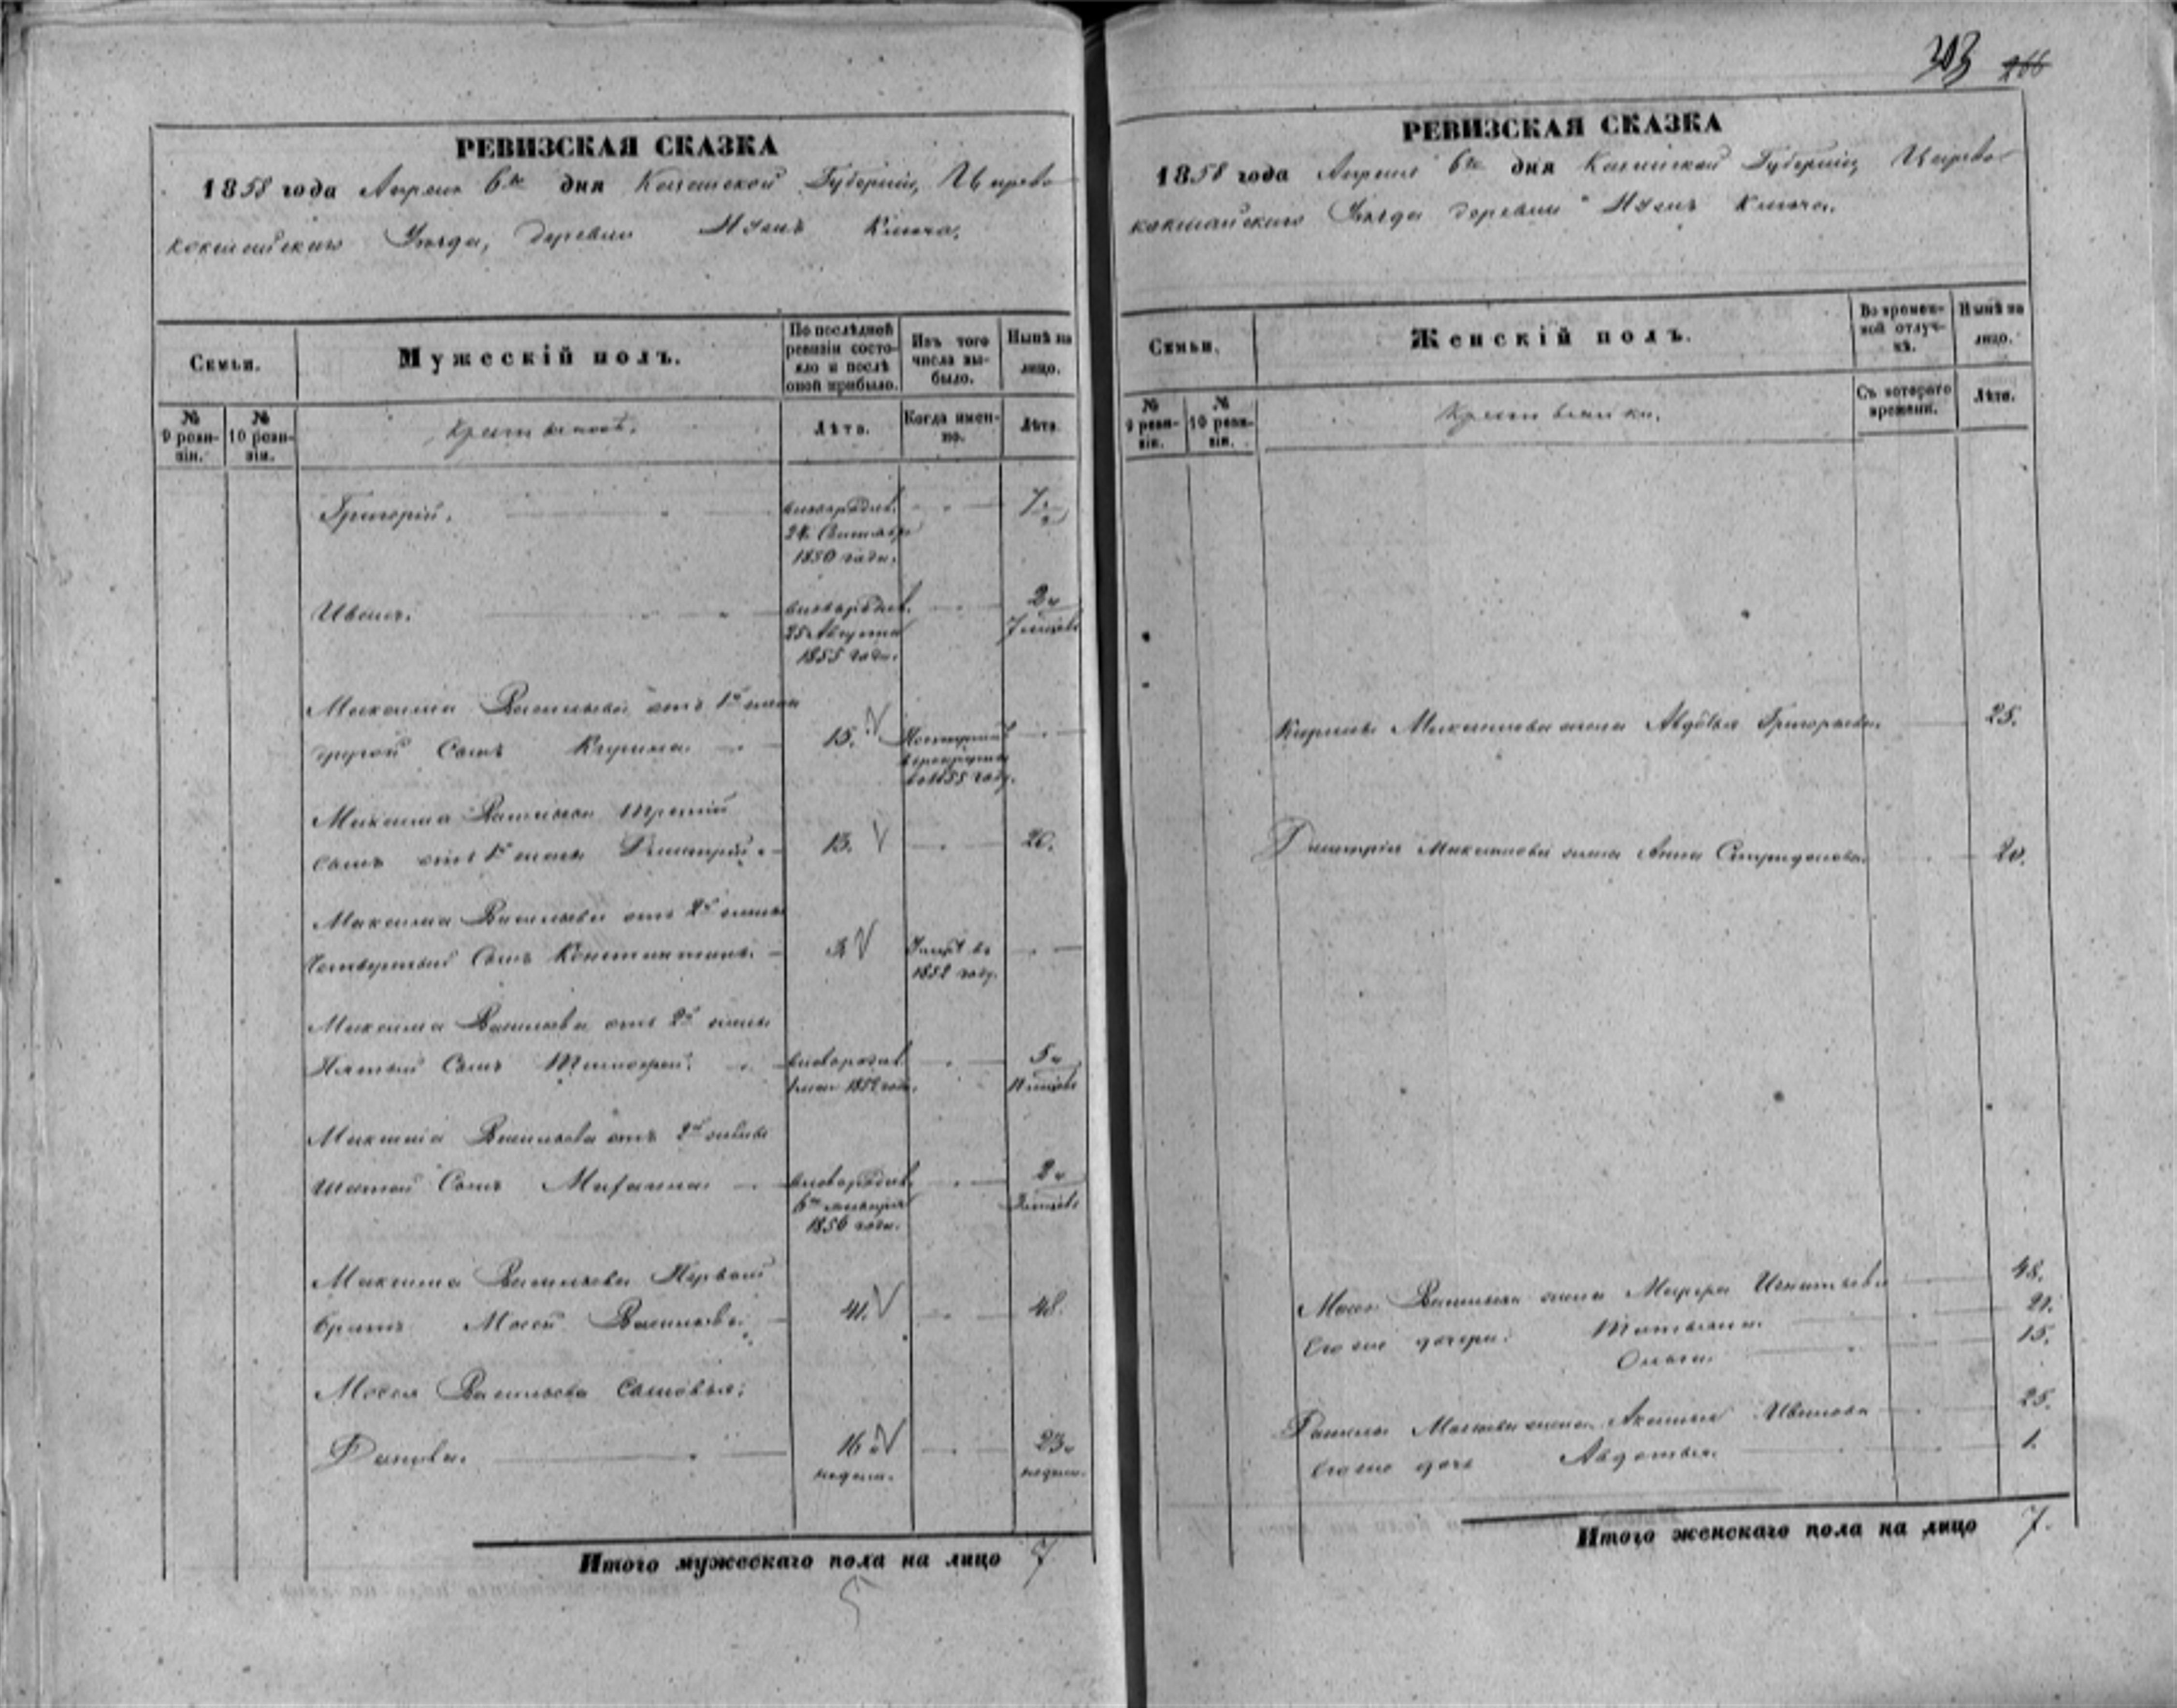 303 266
РЕВИЗСКАЯ СКАЗКА
1858 года Апреля 6го дня Казанской Губернiи, Царево
кокшайскаго Уѣзда, деревни Ключа.
Семьи.
Мужескiй полъ.
По послѣдней ревизiи состояло и послѣ оной прибыло.
Изъ того числа выбыло.
Нынѣ на лицо.
№ 9 ревизiи.
№ 10 ревизiи.
Лѣта.
Когда именно.
Лѣта
Григорiй.
новорожден.
24 Сентября
1850 года.
7½
Иванъ.
новорожден.
25 Августа
1855 года.
2 и
7 мѣсяц
Максима Васильева отъ 1й жены
другой Сынъ
15.
Поступилъ
в рекруты
въ 1855 году.
Максима Васильева третiй
Сынъ отъ 1й жены Дмитрiй
13.
20.
Максима Васильева отъ 2й жены
Четвертый Сынъ Константинъ
Умеръ въ
1852 году.
Максима Васильева отъ 2й жены
Пятый Сынъ Тимофей
новорожден
1852 года.
5 и
11 мѣсяц
Максима Васильева отъ 2й жены
шестой Сынъ
новорожден.
6го
1856 года.
2 и
мѣсяц
Максима Васильева Первой
братъ Мосей Васильевъ
41.
48.
Мосея Васильева Сыновья:
Данила.
16 и
недѣли.
23 и
недѣли.
Итого мужескаго пола на лицо 7
5
РЕВИЗСКАЯ СКАЗКА
1858 года Апреля 6го дня Казанской Губернiи, Царево
кокшайскаго Уѣзда деревни Ключа.
Семьи.
Женскiй полъ.
Во временной отлучкѣ.
Нынѣ на лицо.
№ 9 ревизiи.
№ 10 ревизiи.
Съ котораго времени.
Лѣта.
Максимова жена Авдотья Григорьева
25.
Дмитрiя Максимова жена Анна Спиридонова
20.
Мосея Васильева жена Марфа Игнатьева
48.
Его же дочери: Татьяна
21.
Ольга
15.
Данилы Мосеева жена Акулина Иванова
25.
Его же дочь Авдотья
1.
Итого женскаго пола на лицо 7.